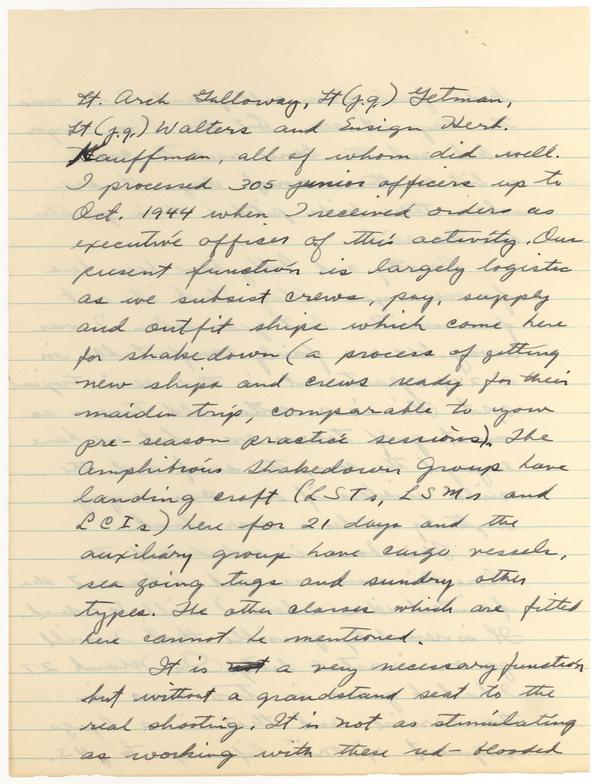 Lt. Arch Galloway, Lt(j.g.) Getman,
Lt(j.g.) Walters and Ensign Herb.
Kauffman, all of whom did well.
I processed 305 junior officers up to
Oct. 1944 when I received orders as
executive officer of this activity. Our
present function is largely logistic
as we subsist crews, pay, supply
and outfit ships which come here
for shakedown (a process of getting
new ships and crews ready for their
maiden trip, comparable to your
pre-season practice sessions). The
Amphibious Shakedown Group have
landing craft (LSTs, LSMs and
LCIs) here for 21 days and the
auxiliary group have cargo vessels,
sea going tugs and sundry other
types. The other classes which are fitted
here cannot be mentioned.
It is not a very necessary function
but without a grandstand seat to the
real shooting. It is not as stimulating
as working with these red-blooded